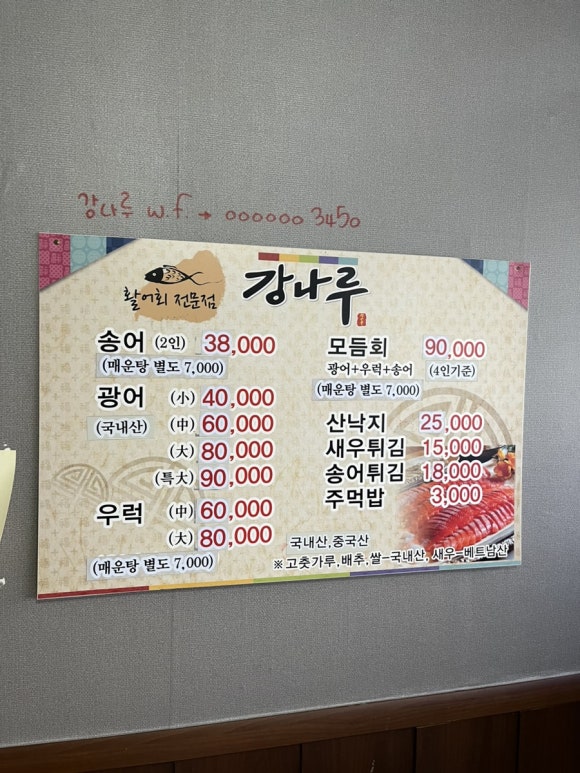 강나루 w.f. → 000000 3450
활어회 전문점
강나루
송어 (2인) 38,000
(매운탕 별도 7,000)
광어 (小) 40,000
(국내산) (中) 60,000
(大) 80,000
(특大) 90,000
우럭 (中) 60,000
(大) 80,000
(매운탕 별도 7,000)
모듬회 90,000
광어+우럭+송어 (4인기준)
(매운탕 별도 7,000)
산낙지 25,000
새우튀김 15,000
송어튀김 18,000
주먹밥 3,000
국내산,중국산
※고춧가루,배추,쌀-국내산, 새우-베트남산